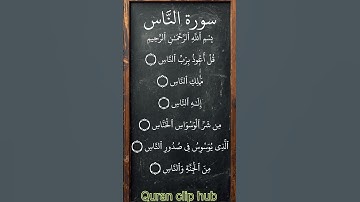 سورة النَّاس
بِسْمِ ٱللَّهِ ٱلرَّحْمَٰنِ ٱلرَّحِيمِ
قُلْ أَعُوذُ بِرَبِّ ٱلنَّاسِ
مَلِكِ ٱلنَّاسِ
إِلَٰهِ ٱلنَّاسِ
مِن شَرِّ ٱلْوَسْوَاسِ ٱلْخَنَّاسِ
ٱلَّذِى يُوَسْوِسُ فِى صُدُورِ ٱلنَّاسِ
مِنَ ٱلْجِنَّةِ وَٱلنَّاسِ
Quran clip hub